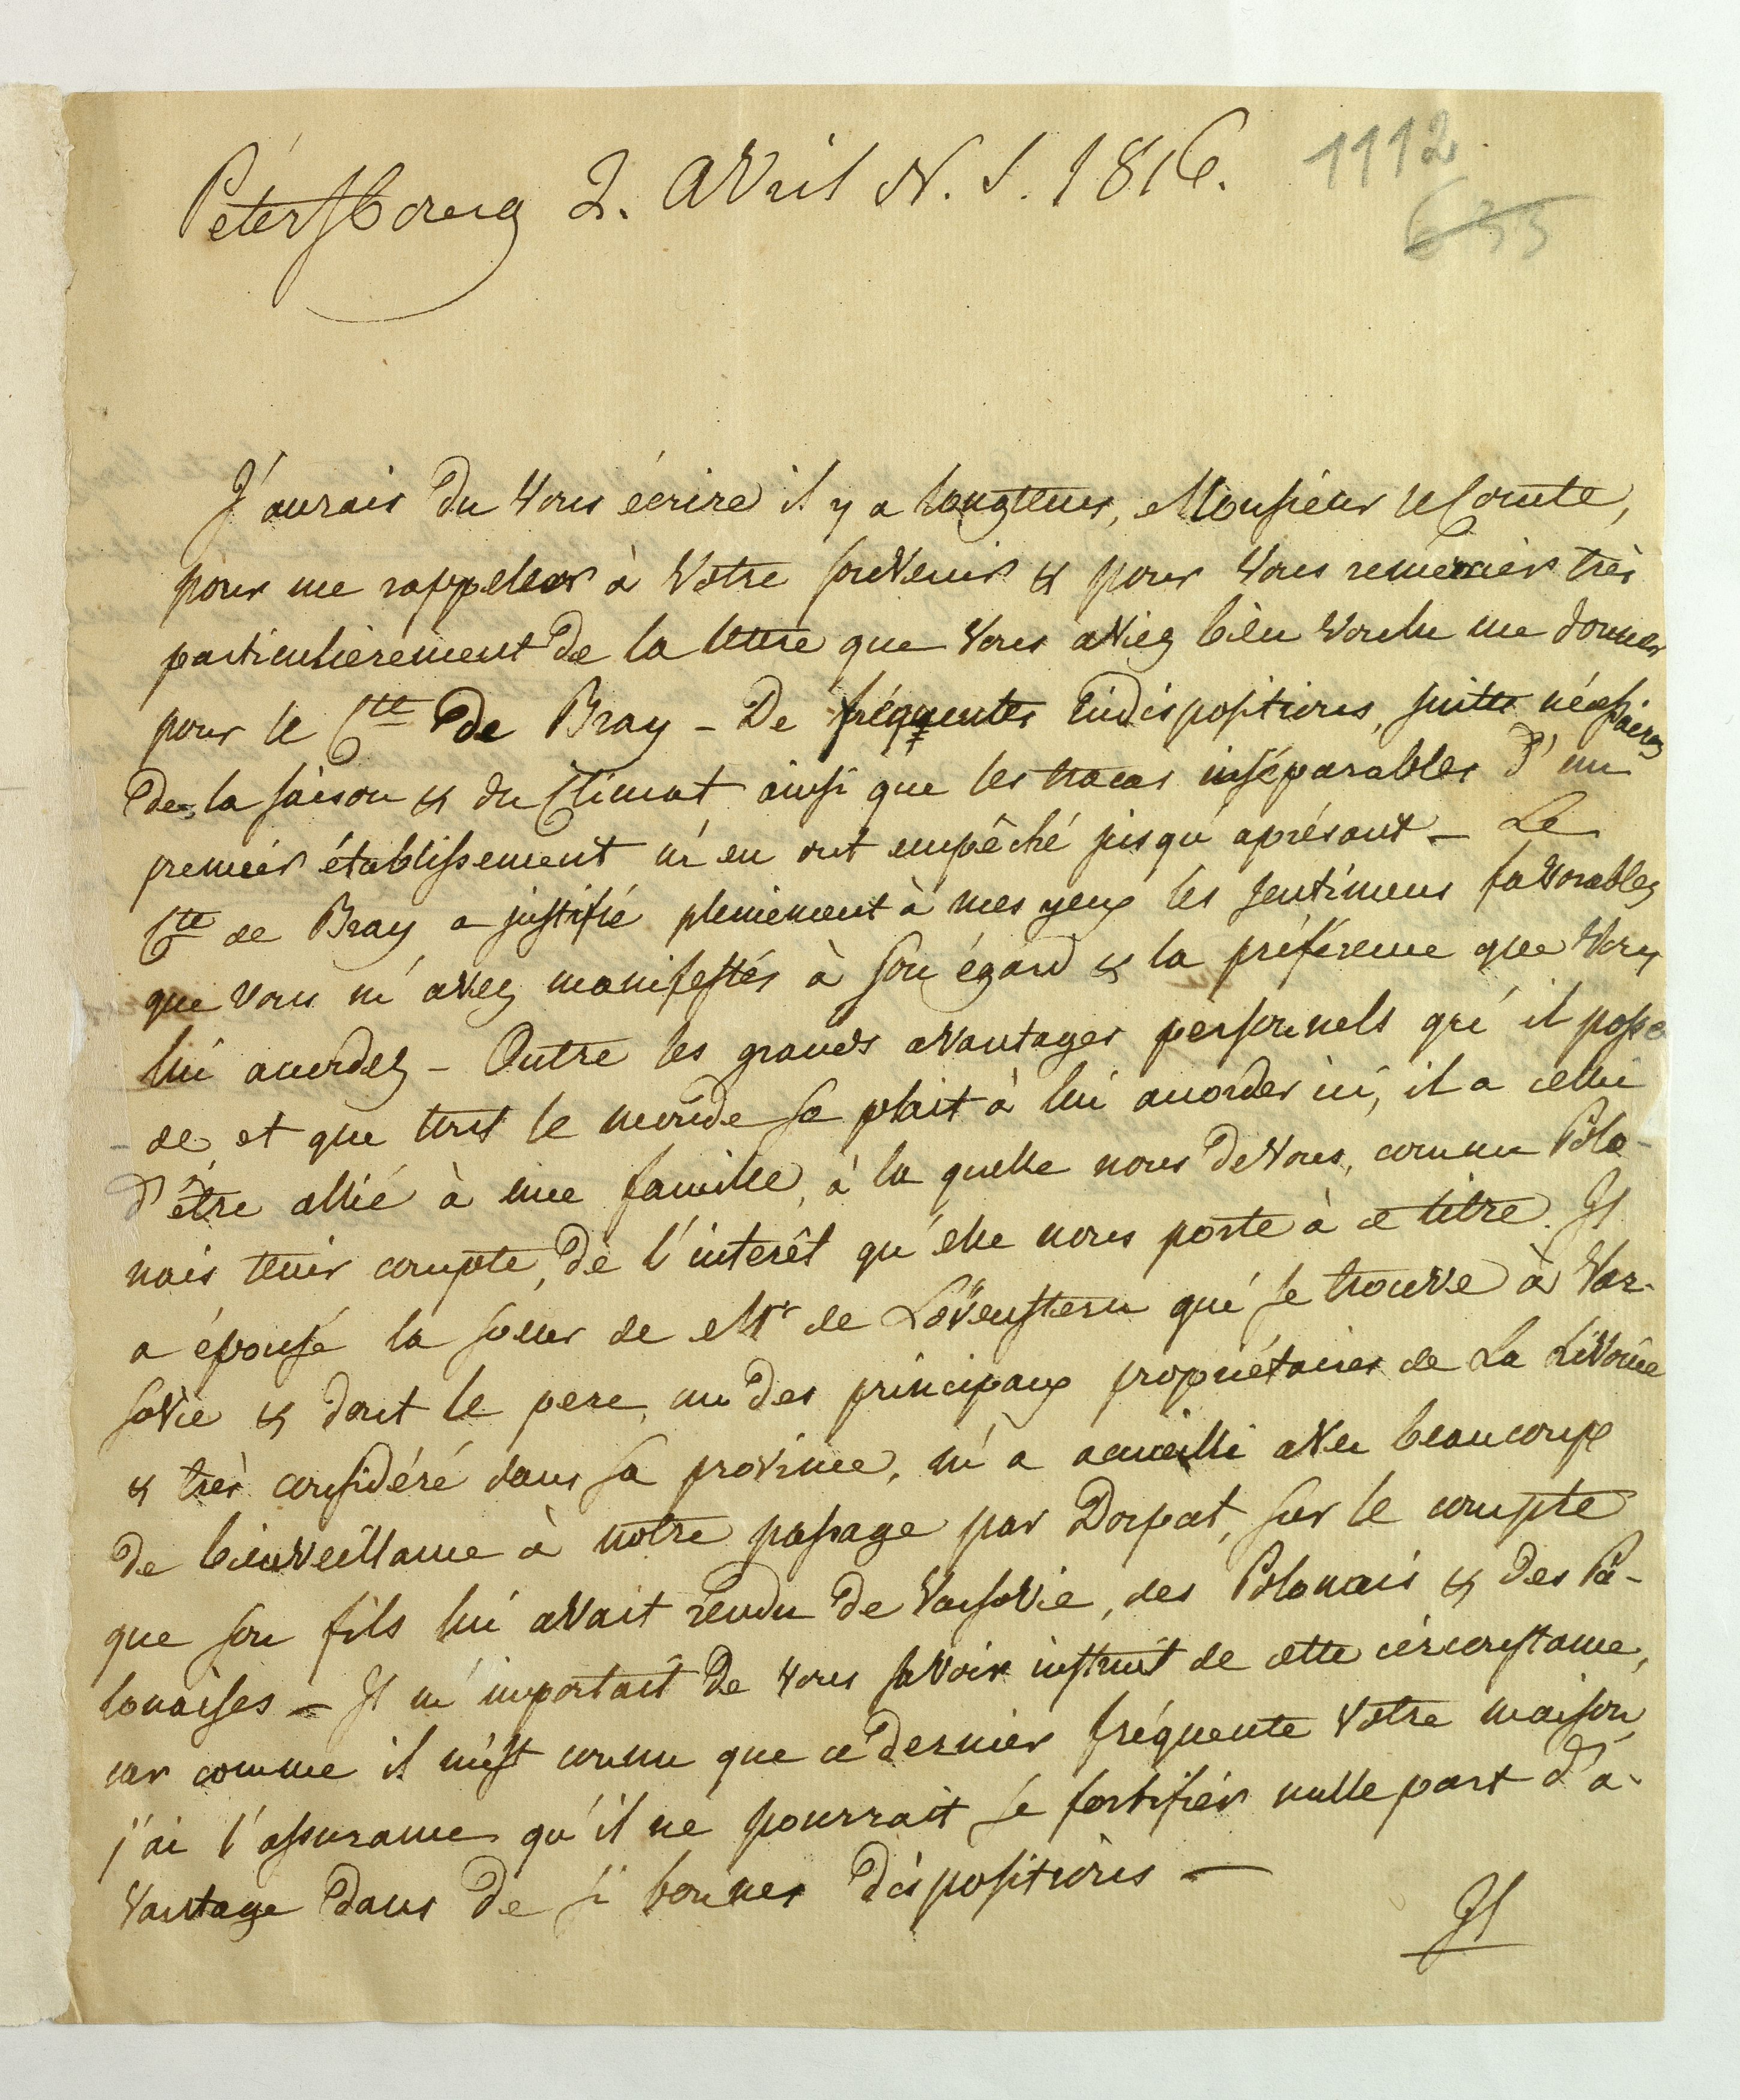 Petersbourg 2. Avril N. S. 1816.
1112
635
J'aurais du Vous écrire il y a longtems, Monsieur le Comte,
pour me rappeler à Votre souvenir & pour Vous remercier très
particulierement de la lettre que Vous aviez bien voulu me donner
pour le Cte de Bray – De fréquentes indispositions, suittes nécessaires
de la saison & du Climat ainsi que les tracas inséparables d'un
premier établissement m'en ont empêché jusqu'aprésent – Le
Cte de Bray a justifié pleinement à mes yeux les sentimens favorables
que Vous m'avez manifestés à son égard & la préférence que Vous
lui accordez – Outre les grands avantages personnels qu'il possé
-de et que tout le monde se plait à lui accorder ici, il a celui
d'être allié à une famille, à la quelle nous devons, comme Polo-
nais tenir compte, de l'interêt qu'elle nous porte à ce titre. Il
a épousé la soeur de Mr de Lövenstern qui se trouve à Var-
sovie & dont le pere, un des principaux propriétaires de La Livonie
& très considéré dans sa province, m'a accueilli avec beaucoup
de bienveillance à notre passage par Dorpat, sur le compte
que son fils lui avait rendu de Varsovie, des Polonais & des Po-
lonaises – Il m'importait de Vous savoir instruit de cette circonstance,
car comme il m'est connu que ce dernier fréquente Votre maison,
j'ai l'assurance qu'il ne pourrait se fortifier nulle part d'a-
vantage dans de si bonnes dispositions –
Il